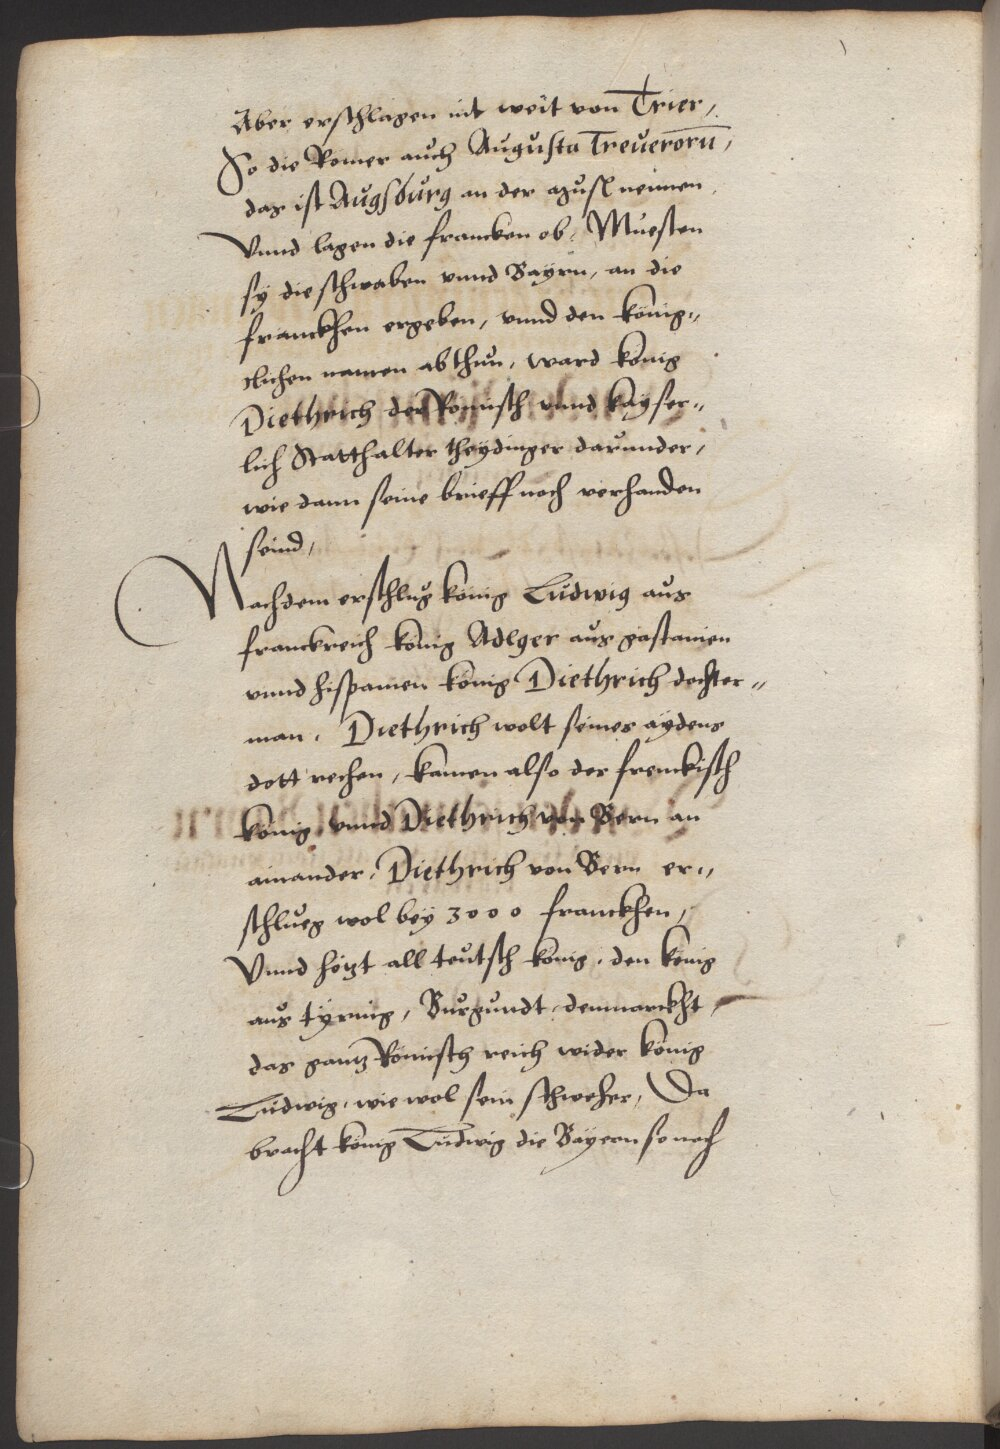 Aber erschlagen nit weit von Trier,
So die Romer auch Augusta Treueroru̅,
das ist Augsburg an der nennen
Vnnd lagen die francken ob, Muesten
sÿ die schwaben vnnd Bayrn, an die
franckhen ergeben, vnnd den König-
clichen namen abthun, ward König
Diethrich der Romisch vnnd Kayser-
lich Statthalter theydinger darunder,
wie dann seine brieff noch verhanden
seind,
Nachdem erschlug König Ludwig aus
franckreich König Adlger aus gastanien
vnnd hispanien König Diethrich dochter-
man. Diethrich wolt seines aydens
dott rechen, kamen also der frenckisch
König vnnd Diethrich von Bern an
ainander. Diethrich von Bern er-
schlueg wol bey 3000 franckhen,
Vnnd hetzt all teutsch König, den König
aus tÿrnig, Burgundt, dennmarckht,
das gantz Römisch reich wider König
Ludwig, wie wol sein schweher, Da
bracht König Ludwig die Bayern so noch